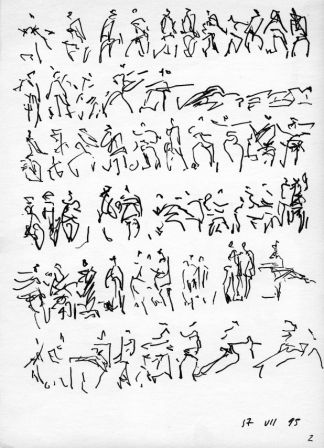 17 VII 95
2